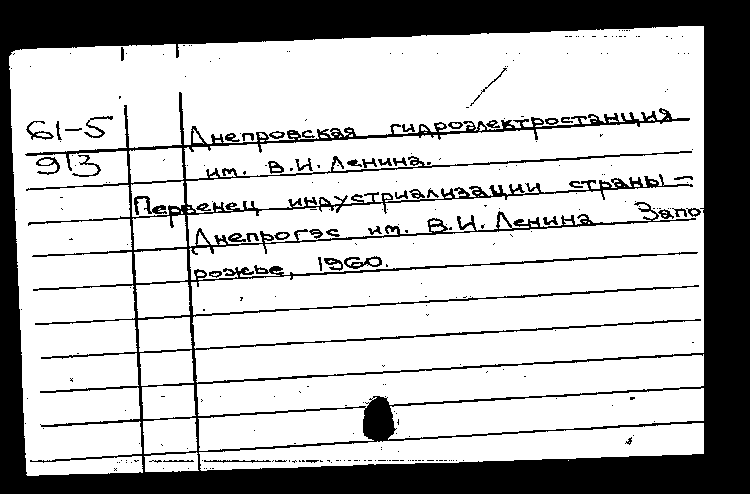 61-5
Днепровская гидроэлектростанция
913
им. В.И. Ленина.
Первенец индустриализации страны –
Днепрогэс им. В.И. Ленина. Запо
рожье, 1960.